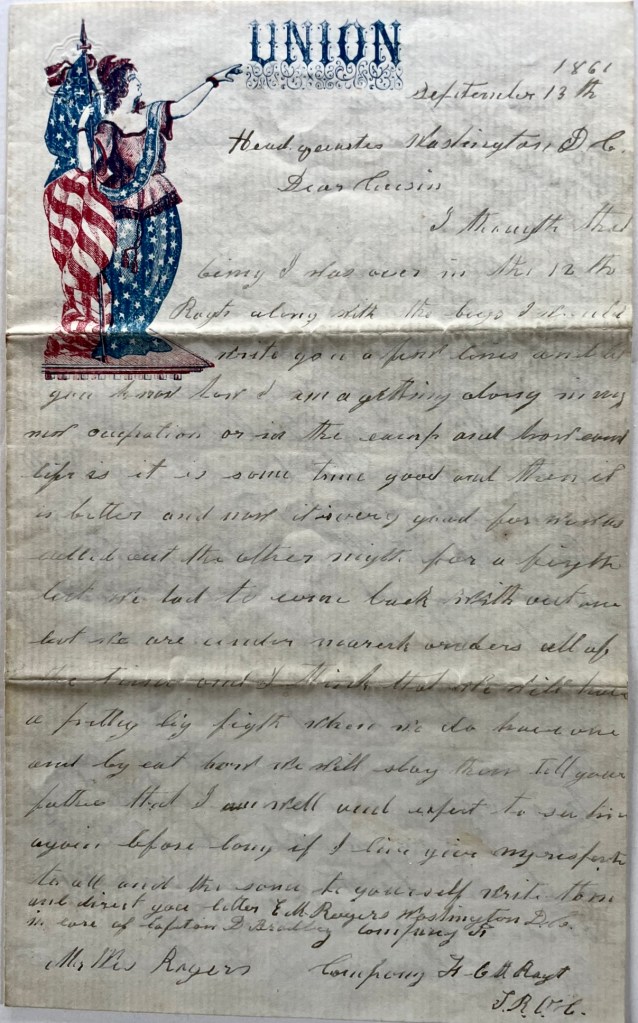 UNION
1861
September 13 th
Head quarters Washington D C.
Dear Cusin
I thougth that
being I was over in the 12 th
Regt along with the boys I would
write you a few lines and let
you know how I am a getting along in my
new ocupation or in the camp and how
life is it is some time good and then it
is better and now it is very good for we was
called out the other nigth for a figth
but we had to come back with out one
but we are under march orders all of
the time and I think that we will have
a pretty big figth when we do have one
and by eat how we will slay them tell your
father that I am well and expect to see him
again before long if I live give my respects
to all and the same to yourself write then
and direct you letter E. M. Rogers Washington D. C.
in care of Capton D Bradley Company
Mr Wes Rogers Company Regt